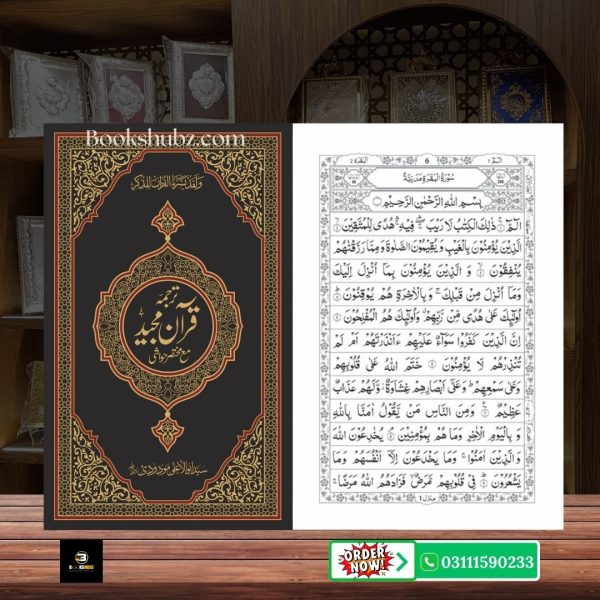 Bookshubz.com
وَلَقَدْ يَسَّرْنَا الْقُرْاٰنَ لِلذِّكْرِ
ترجمہ
قرآن مجید
مع مختصر حواشی
سید ابوالاعلیٰ مودودی
6
سُوْرَةُ الْبَقَرَةِ مَدَنِيَّةٌ
بِسْمِ اللّٰهِ الرَّحْمٰنِ الرَّحِيْمِ
الٓمّٓ ۚ ذٰلِكَ الْكِتٰبُ لَا رَيْبَ ۛ فِيْهِ ۛ هُدًى لِّلْمُتَّقِيْنَ
الَّذِيْنَ يُؤْمِنُوْنَ بِالْغَيْبِ وَ يُقِيْمُوْنَ الصَّلٰوةَ وَ مِمَّا رَزَقْنٰهُمْ
يُنْفِقُوْنَ وَ الَّذِيْنَ يُؤْمِنُوْنَ بِمَاۤ اُنْزِلَ اِلَيْكَ
وَمَاۤ اُنْزِلَ مِنْ قَبْلِكَ ۚ وَ بِالْاٰخِرَةِ هُمْ يُوْقِنُوْنَ
اُولٰٓئِكَ عَلٰى هُدًى مِّنْ رَّبِّهِمْ ۗ وَاُولٰٓئِكَ هُمُ الْمُفْلِحُوْنَ
اِنَّ الَّذِيْنَ كَفَرُوْا سَوَآءٌ عَلَيْهِمْ ءَاَنْذَرْتَهُمْ اَمْ لَمْ
تُنْذِرْهُمْ لَا يُؤْمِنُوْنَ خَتَمَ اللّٰهُ عَلٰى قُلُوْبِهِمْ
وَعَلٰى سَمْعِهِمْ ؕ وَعَلٰۤى اَبْصَارِهِمْ غِشَاوَةٌ ؗ وَّلَهُمْ عَذَابٌ
عَظِيْمٌ وَمِنَ النَّاسِ مَنْ يَّقُوْلُ اٰمَنَّا بِاللّٰهِ
وَ بِالْيَوْمِ الْاٰخِرِ وَمَا هُمْ بِمُؤْمِنِيْنَ يُخٰدِعُوْنَ اللّٰهَ
وَالَّذِيْنَ اٰمَنُوْا ۚ وَمَا يَخْدَعُوْنَ اِلَّاۤ اَنْفُسَهُمْ وَمَا
يَشْعُرُوْنَ فِيْ قُلُوْبِهِمْ مَّرَضٌ ۙ فَزَادَهُمُ اللّٰهُ مَرَضًا ۚ
منزل ١
BOOKSHUBZ
ORDER
NOW!
03111590233